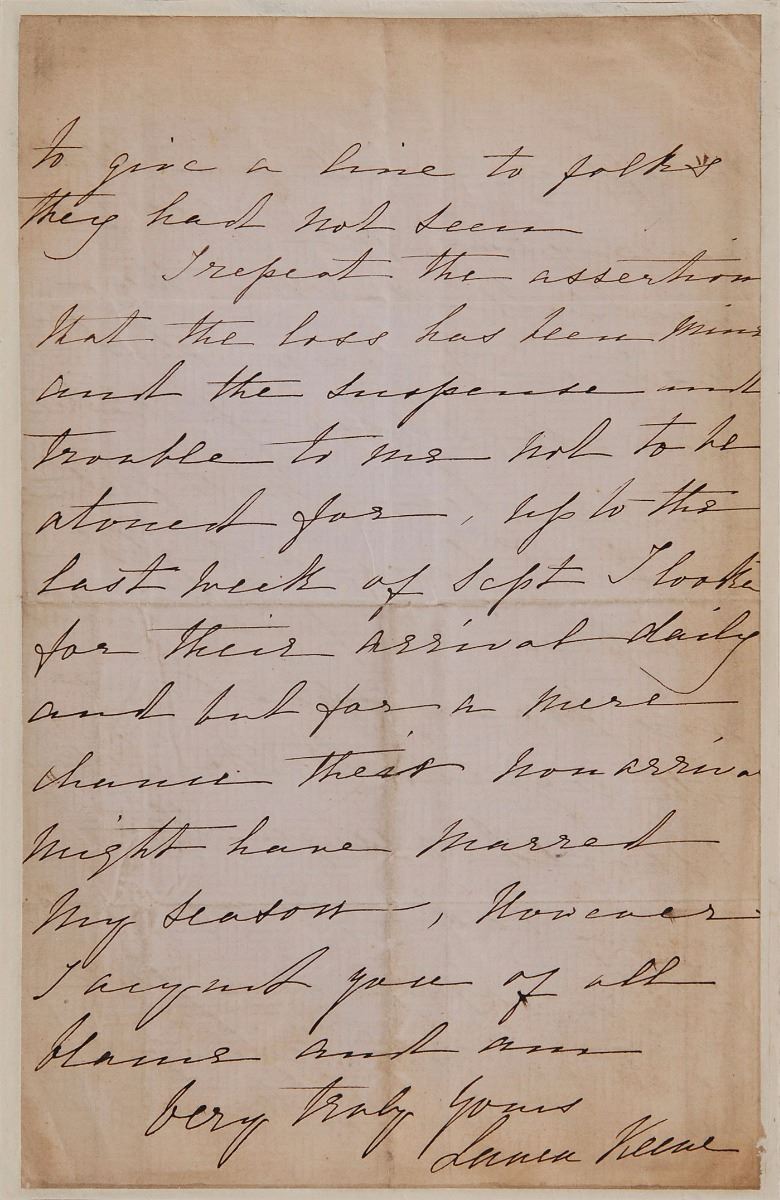 to give a line to folks
they had not seen
I repeat the assertion
that the loss has been mine
and the suspense and
trouble to me not to be
atoned for, up to the
last week of Sept I looke
for their arrival daily
and but for a mere
chance their non arriva
might have marred
my season, However
I acquit you of all
blame and am
Very truly yours
Laura Keene